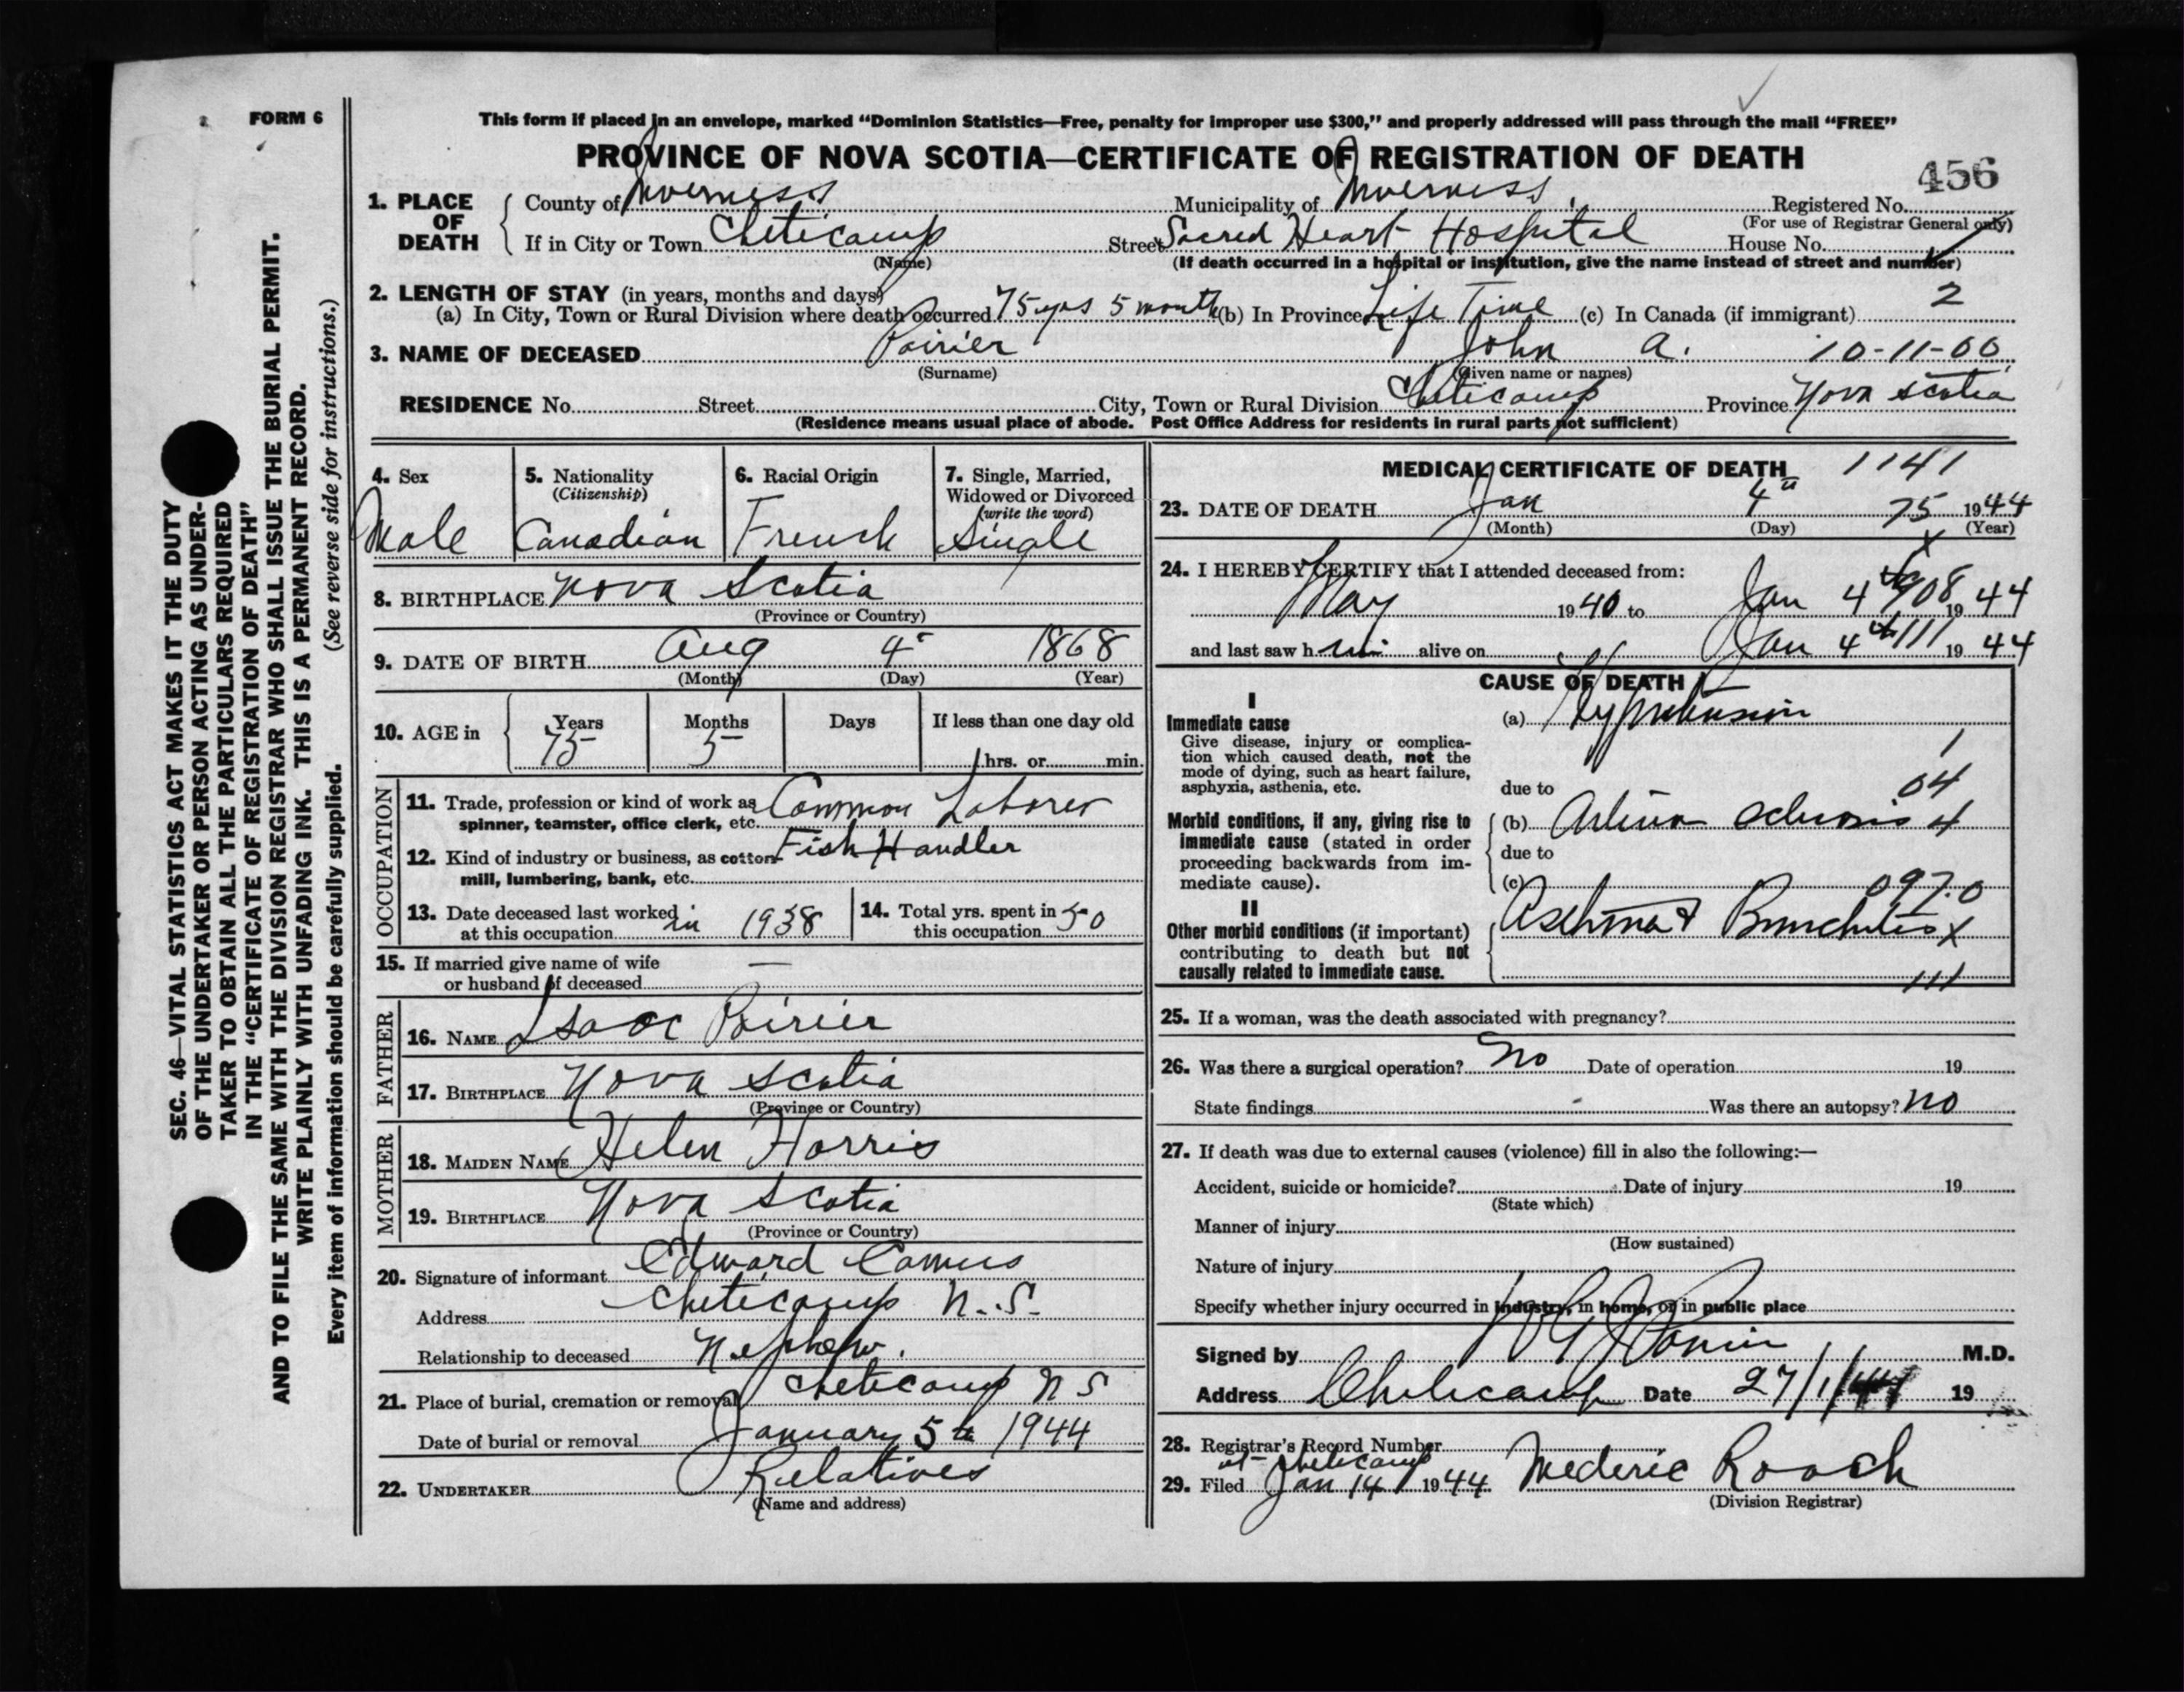 FORM 6
This form if placed in an envelope, marked "Dominion Statistics—Free, penalty for improper use $300," and properly addressed will pass through the mail "FREE"
PROVINCE OF NOVA SCOTIA—CERTIFICATE OF REGISTRATION OF DEATH
456
1. PLACE OF DEATH
County of Inverness Municipality of Inverness Registered No.
(For use of Registrar General only)
If in City or Town Cheticamp Street Sacred Heart Hospital House No.
(Name) (If death occurred in a hospital or institution, give the name instead of street and number)
2. LENGTH OF STAY (in years, months and days)
(a) In City, Town or Rural Division where death occurred 75 yrs 5 month (b) In Province Life Time (c) In Canada (if immigrant) 2
3. NAME OF DECEASED Poirier John A. 10-11-00
(Surname) (Given name or names)
RESIDENCE No. Street City, Town or Rural Division Cheticamp Province Nova Scotia
(Residence means usual place of abode. Post Office Address for residents in rural parts not sufficient)
4. Sex
Male
5. Nationality
(Citizenship)
Canadian
6. Racial Origin
French
7. Single, Married,
Widowed or Divorced
(write the word)
Single
8. BIRTHPLACE Nova Scotia
(Province or Country)
9. DATE OF BIRTH Aug 4 1868
(Month) (Day) (Year)
10. AGE in
Years Months Days If less than one day old
75 5 hrs. or min.
OCCUPATION
11. Trade, profession or kind of work as Common Laborer
spinner, teamster, office clerk, etc.
12. Kind of industry or business, as cotton Fish Handler
mill, lumbering, bank, etc.
13. Date deceased last worked
at this occupation in 1938
14. Total yrs. spent in
this occupation 50
15. If married give name of wife —
or husband of deceased
FATHER
16. NAME Isaac Poirier
17. BIRTHPLACE Nova Scotia
(Province or Country)
MOTHER
18. MAIDEN NAME Helen Harris
19. BIRTHPLACE Nova Scotia
(Province or Country)
20. Signature of informant Edward Camus
Address Cheticamp N.S.
Relationship to deceased Nephew.
21. Place of burial, cremation or removal Cheticamp N S
Date of burial or removal January 5th 1944
22. UNDERTAKER Relatives
(Name and address)
MEDICAL CERTIFICATE OF DEATH 1141
23. DATE OF DEATH Jan 4th 75 1944
(Month) (Day) (Year)
24. I HEREBY CERTIFY that I attended deceased from:
May 1940 to Jan 4th 908 1944
and last saw him alive on Jan 4th 111 1944
CAUSE OF DEATH
I
Immediate cause
Give disease, injury or complica-
tion which caused death, not the
mode of dying, such as heart failure,
asphyxia, asthenia, etc.
(a) Hypertension
1
due to 04
Morbid conditions, if any, giving rise to
immediate cause (stated in order
proceeding backwards from im-
mediate cause).
(b) Arterio Sclerosis 4
due to
(c) 097.0
II
Other morbid conditions (if important)
contributing to death but not
causally related to immediate cause.
Asthma & Bronchitis X
111
25. If a woman, was the death associated with pregnancy?
26. Was there a surgical operation? No Date of operation 19
State findings Was there an autopsy? No
27. If death was due to external causes (violence) fill in also the following:—
Accident, suicide or homicide? Date of injury 19
(State which)
Manner of injury
(How sustained)
Nature of injury
Specify whether injury occurred in industry, in home, or in public place
Signed by M.D.
Address Cheticamp Date 27/1/44 19
28. Registrar's Record Number
at Cheticamp
29. Filed Jan 14 1944 Mederic Roach
(Division Registrar)
SEC. 46—VITAL STATISTICS ACT MAKES IT THE DUTY
OF THE UNDERTAKER OR PERSON ACTING AS UNDER-
TAKER TO OBTAIN ALL THE PARTICULARS REQUIRED
IN THE "CERTIFICATE OF REGISTRATION OF DEATH"
AND TO FILE THE SAME WITH THE DIVISION REGISTRAR WHO SHALL ISSUE THE BURIAL PERMIT.
WRITE PLAINLY WITH UNFADING INK. THIS IS A PERMANENT RECORD.
Every item of information should be carefully supplied. (See reverse side for instructions.)